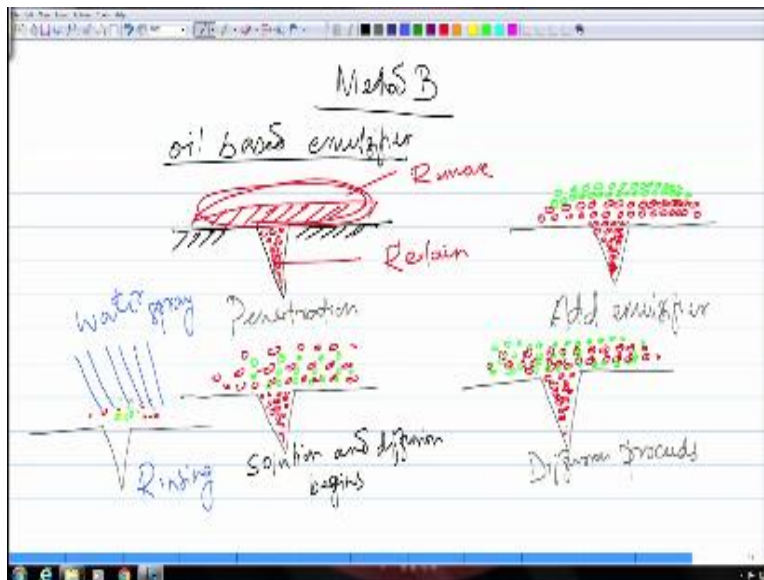 Method B
oil based emulsifier
Remove
Retain
Penetration
Add emulsifier
water spray
Rinsing
Solution and diffusion
begins
Diffusion proceeds